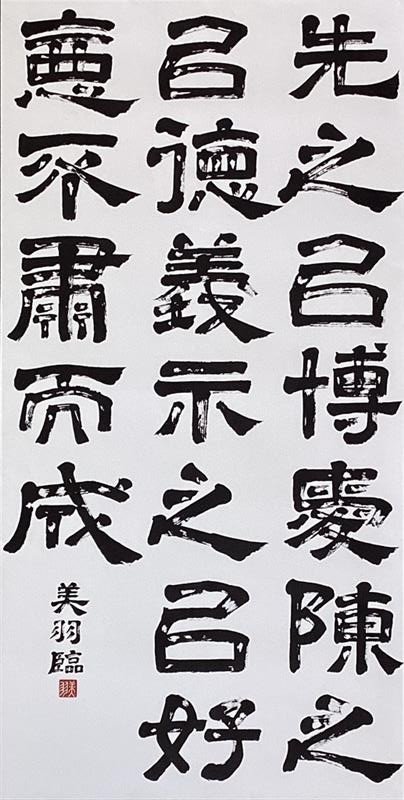 先之㠯博愛陳之
㠯德義示之㠯好
惡不肅而成
美羽臨